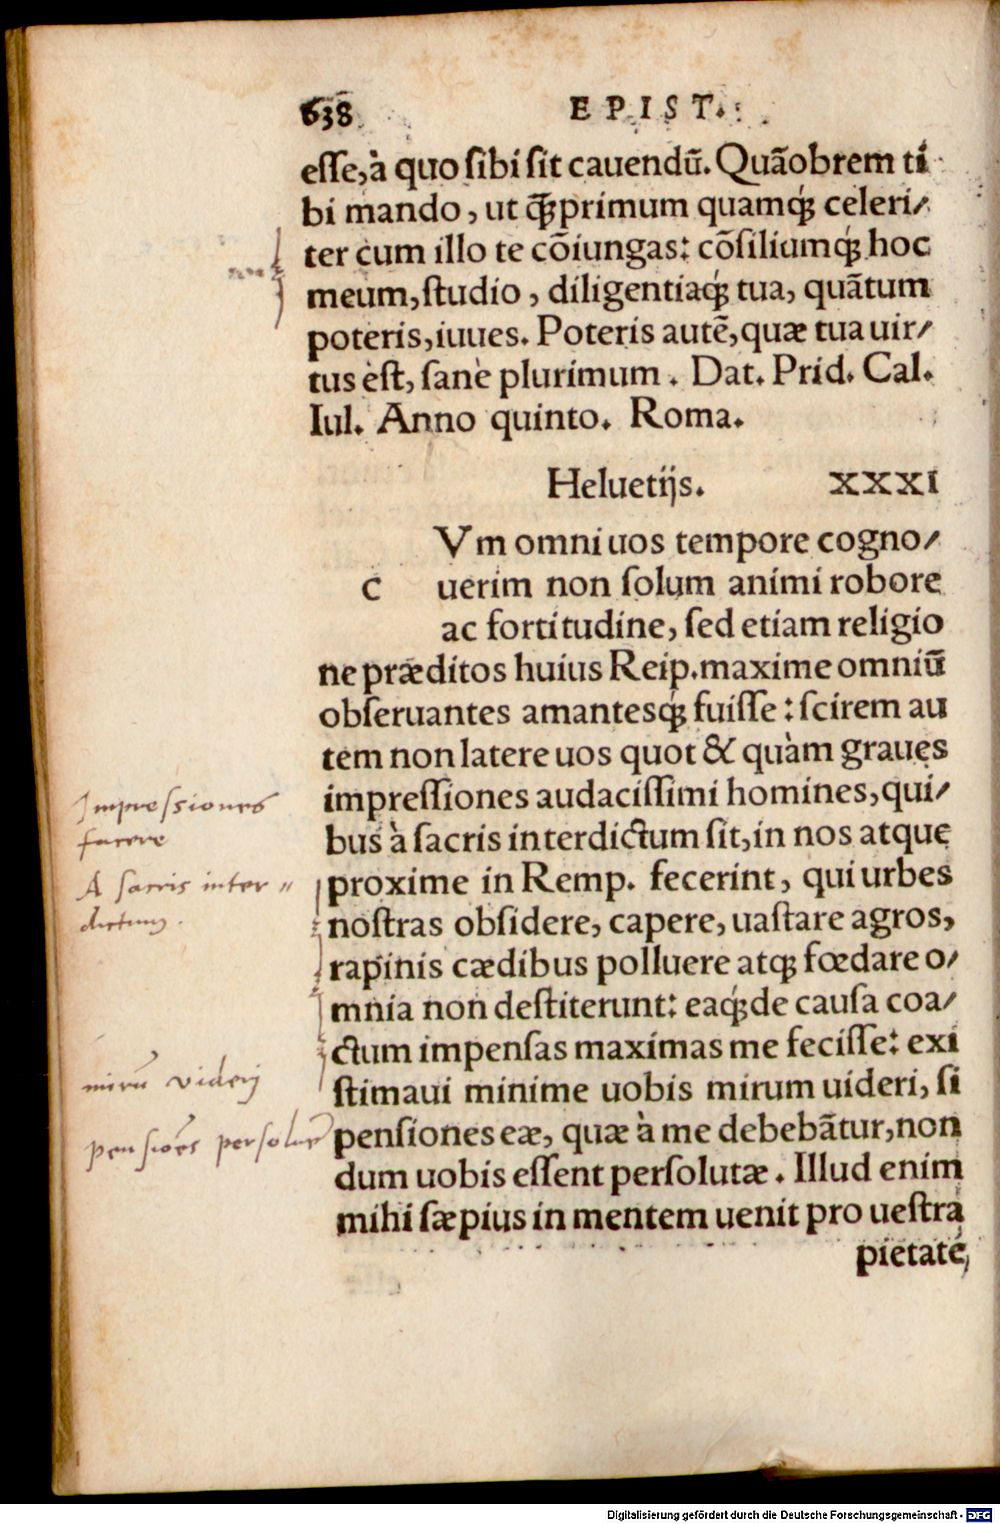 638 EPIST.
esse, à quo sibi sit cauendū. Quāobrem ti
bi mando, ut q̃primum quamq́; celeri/
ter cum illo te cōiungas: cōsiliumq́; hoc
meum, studio, diligentiaq́; tua, quātum
poteris, iuues. Poteris autē, quæ tua uir/
tus est, sanè plurimum. Dat. Prid. Cal.
Iul. Anno quinto. Roma.
Heluetijs. XXXI
Vm omni uos tempore cogno/
c uerim non solum animi robore
ac fortitudine, sed etiam religio
ne præditos huius Reip. maxime omniū
obseruantes amantesq́; fuisse: scirem au
tem non latere uos quot & quàm graues
impressiones audacissimi homines, qui/
bus à sacris interdictum sit, in nos atque
proxime in Remp. fecerint, qui urbes
nostras obsidere, capere, uastare agros,
rapinis cædibus polluere atq; fœdare o/
mnia non destiterunt: eaq́; de causa coa/
ctum impensas maximas me fecisse: exi
stimaui minime uobis mirum uideri, si
pensiones eæ, quæ à me debebātur, non
dum uobis essent persolutæ. Illud enim
mihi sæpius in mentem uenit pro uestra
pietate,
Impressiones
facere
A sacris inter〃
dictum.
mirū viderj
pensiōes persoluē
Digitalisierung gefördert durch die Deutsche Forschungsgemeinschaft - DFG